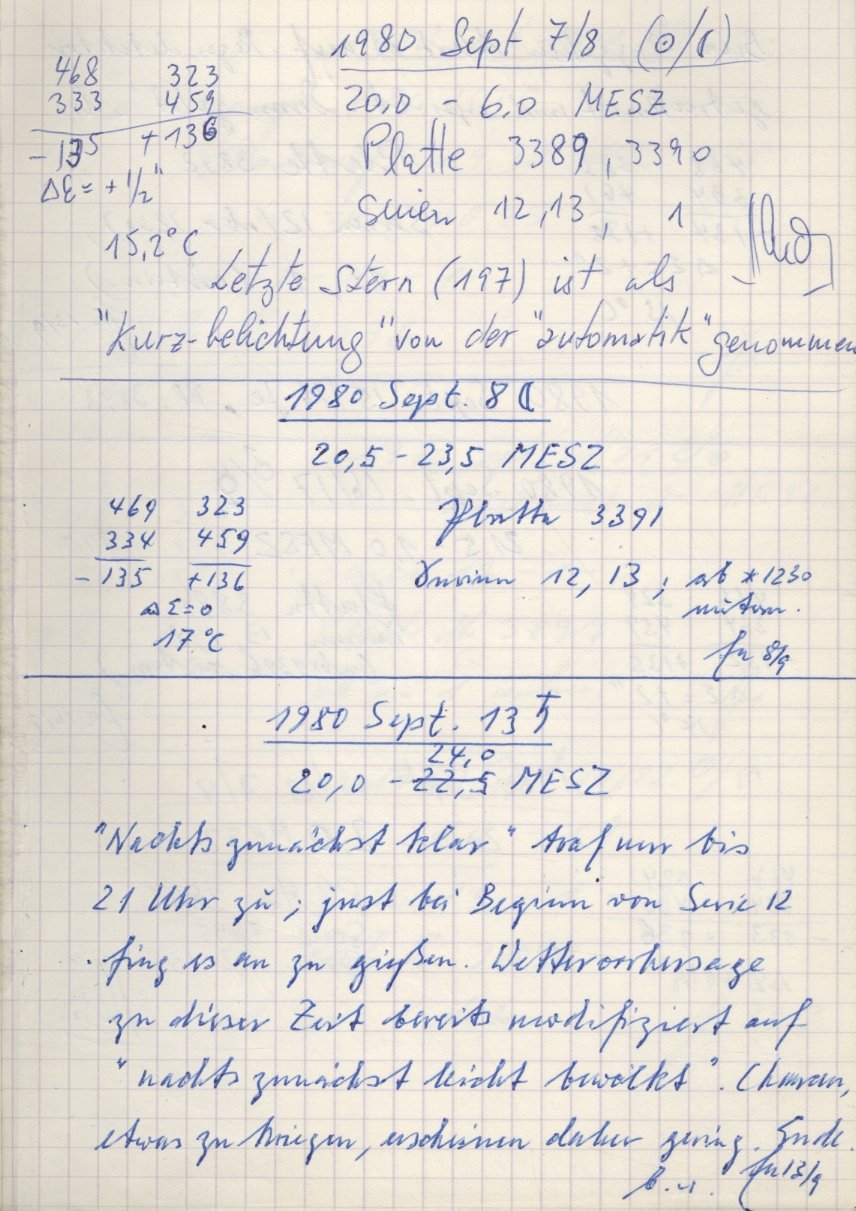 1980 Sept 7/8 (☉/☾)
468 323
333 459
-135 +136
Δε = + 1/2"
15,2°C
20,0 - 6,0 MESZ
Platte 3389, 3390
Serien 12, 13, 1
Letzte Stern (197) ist als
"Kurz-belichtung" von der "automatik" genommen
1980 Sept. 8 ☾
20,5 - 23,5 MESZ
469 323
334 459
-135 +136
Δε=0
17°C
Platte 3391
Serien 12, 13; ab *1230
8/9
1980 Sept. 13 ♄
24,0
20,0 - 22,5 MESZ
"Nachts zunächst klar" traf nur bis
21 Uhr zu; just bei Beginn von Serie 12
fing es an zu gießen. Wettervorhersage
zu dieser Zeit bereits modifiziert auf
"nachts zunächst leicht bewölkt". Chancen,
etwas zu kriegen, erscheinen daher gering. Ende.
13/9